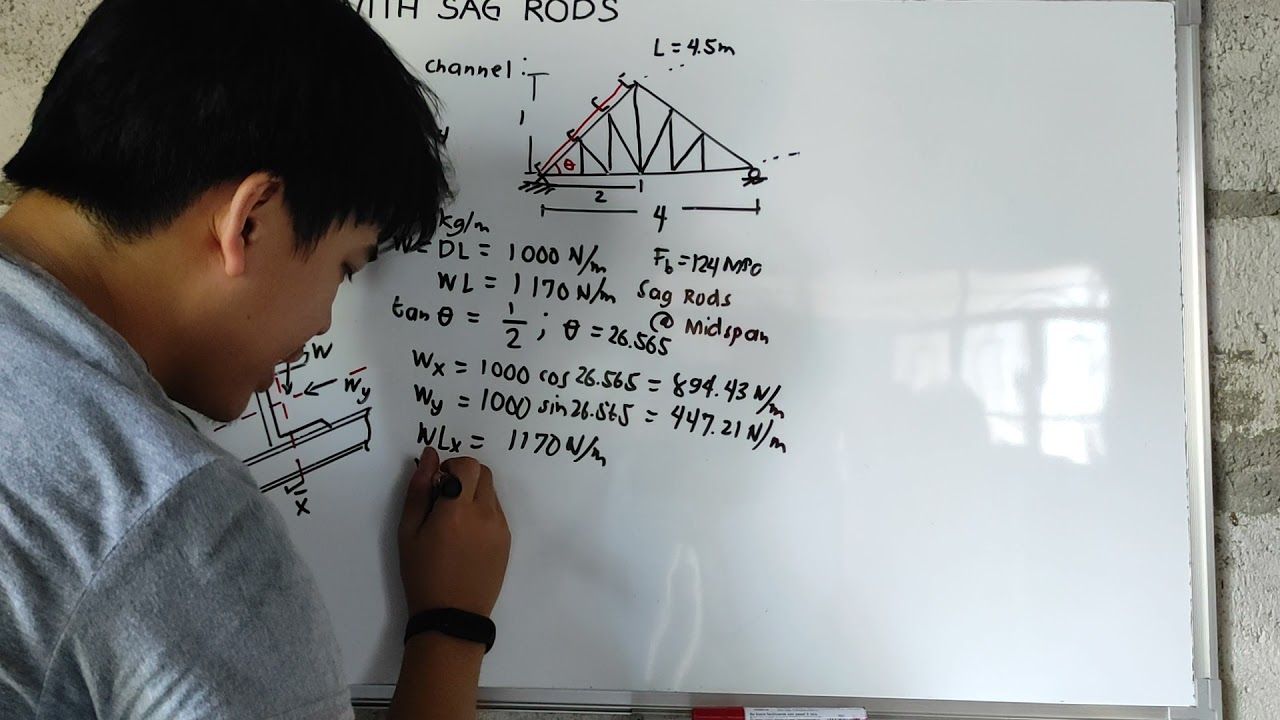 WITH SAG RODS
L = 4.5m
channel :
1
θ
2
1
4
kg/m
W = DL = 1000 N/m
WL = 1170 N/m
Fb = 124 MPa
Sag Rods
@ Midspan
tan θ = 1/2 ; θ = 26.565
Wx = 1000 cos 26.565 = 894.43 N/m
Wy = 1000 sin 26.565 = 447.21 N/m
WLx = 1170 N/m
W
Wy
x